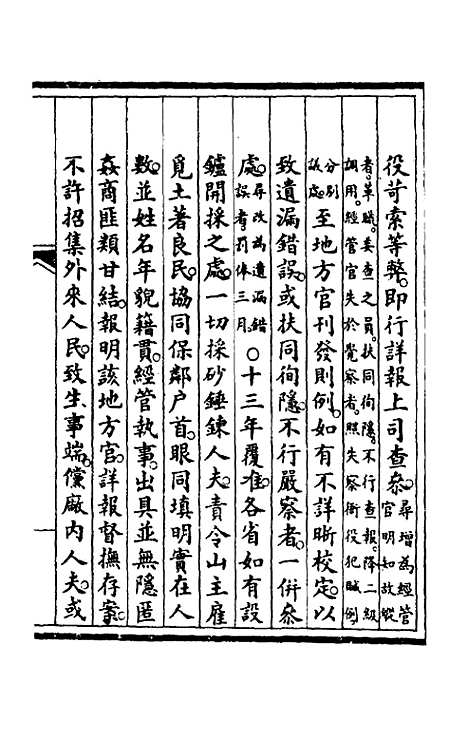 役苛索等弊。即行詳報上司查參。尋增為經管官明知故縱
者革職。委查之員。扶同徇隱。不行查報。降二級調用。經管官失於覺察者。照失察衙役犯贓例。
分別議處。至地方官刊發則例。如有不詳晰校定。以
致遺漏錯誤。或扶同徇隱。不行嚴察者。一併參
處。尋改為遺漏錯誤者。罰俸三月。○十三年覆准。各省如有設
鑪開採之處。一切採砂鍊鍊人夫。責令山主雇
覓土著良民。協同保鄰戶首。眼同填明實在人
數。並姓名年貌籍貫。經管執事。出具並無隱匿
姦商匪類甘結。報明該地方官。詳報督撫存案。
不許招集外來人民。致生事端。儻廠內人夫。或